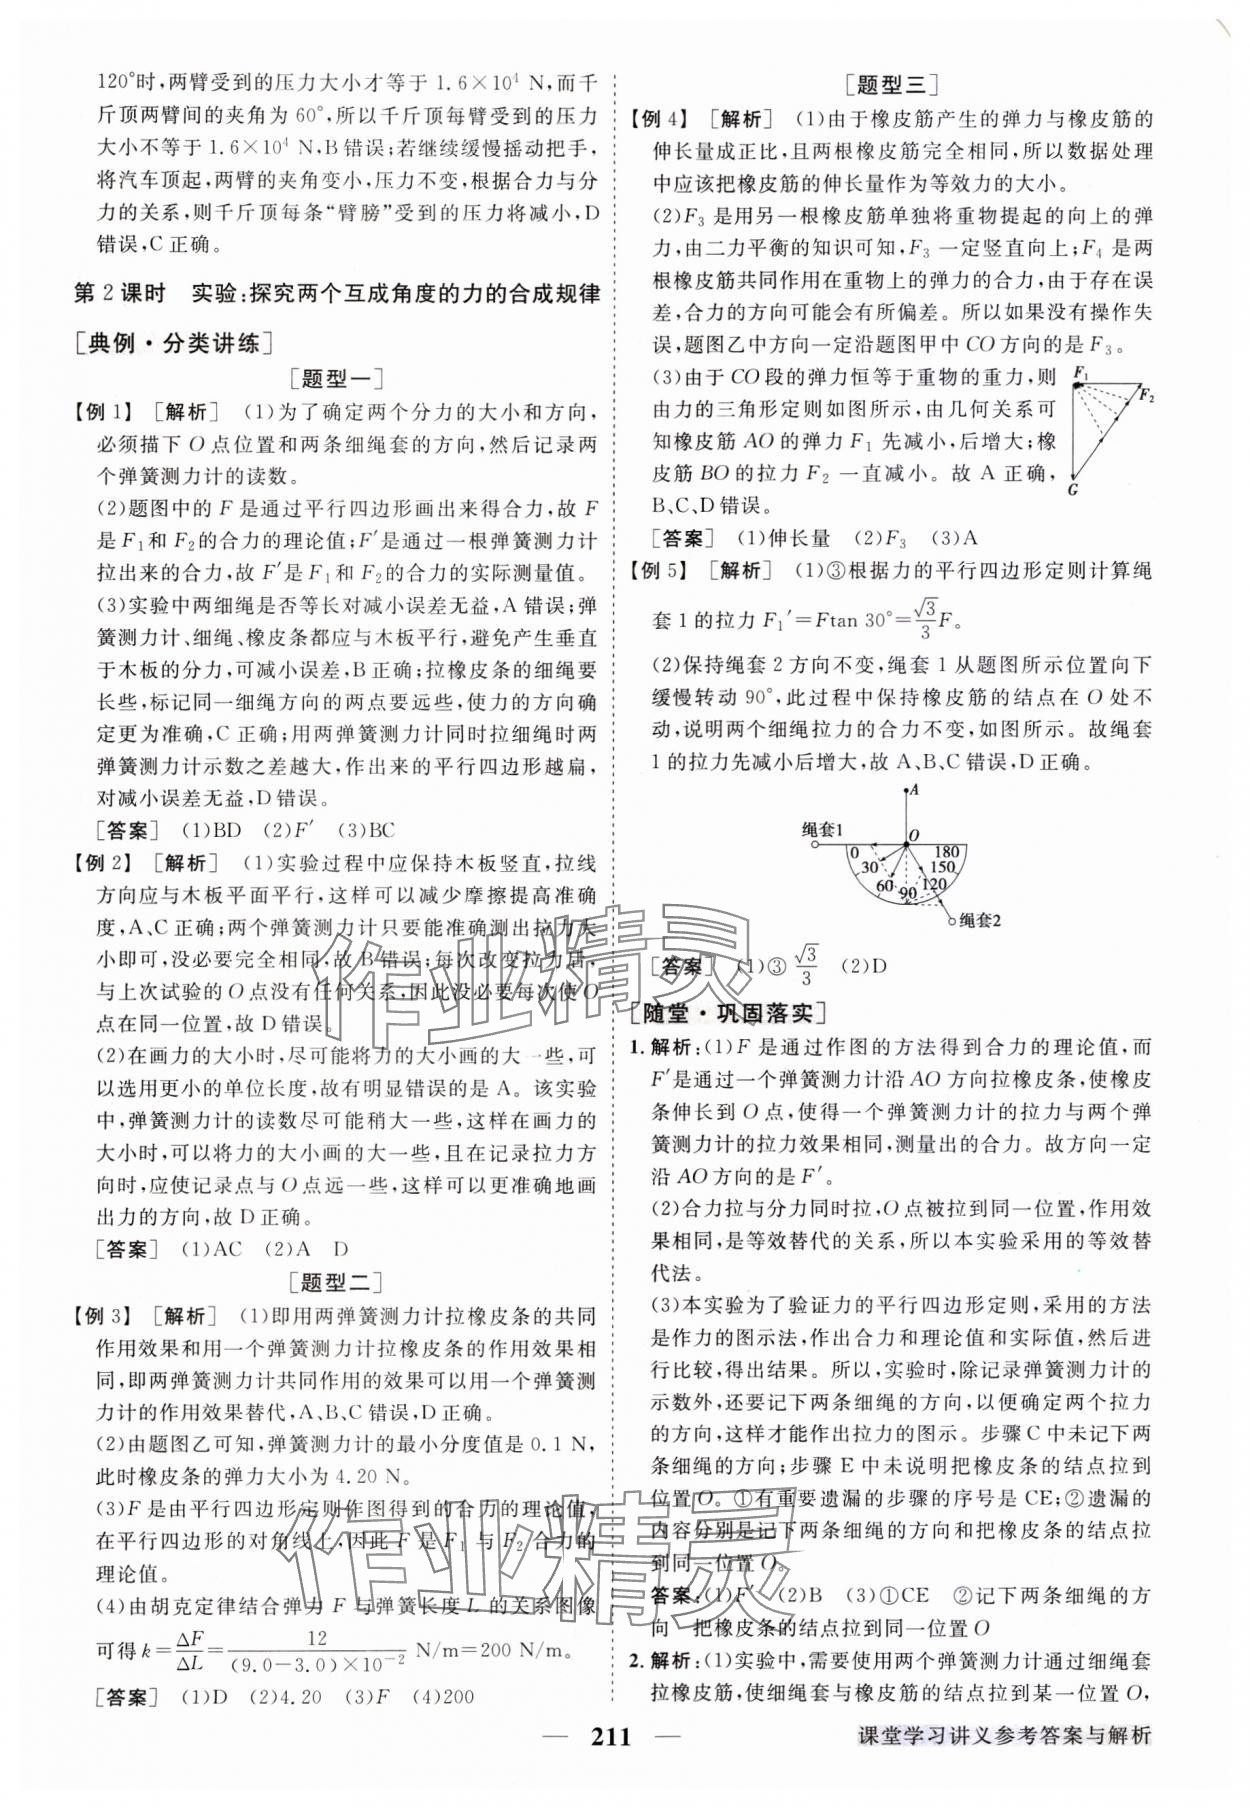 120°时,两臂受到的压力大小才等于 1.6×10⁴ N,而千
斤顶两臂间的夹角为 60°,所以千斤顶每臂受到的压力
大小不等于 1.6×10⁴ N,B 错误;若继续缓慢摇动把手,
将汽车顶起,两臂的夹角变小,压力不变,根据合力与分
力的关系,则千斤顶每条“臂膀”受到的压力将减小,D
错误,C 正确。
第 2 课时 实验:探究两个互成角度的力的合成规律
[典例·分类讲练]
[题型一]
【例 1】 [解析] (1)为了确定两个分力的大小和方向,
必须描下 O 点位置和两条细绳套的方向,然后记录两
个弹簧测力计的读数。
(2)题图中的 F 是通过平行四边形画出来得合力,故 F
是 F₁和 F₂的合力的理论值;F′是通过一根弹簧测力计
拉出来的合力,故 F′是 F₁ 和 F₂的合力的实际测量值。
(3)实验中两细绳是否等长对减小误差无益,A 错误;弹
簧测力计、细绳、橡皮条都应与木板平行,避免产生垂直
于木板的分力,可减小误差,B 正确;拉橡皮条的细绳要
长些,标记同一细绳方向的两点要远些,使力的方向确
定更为准确,C 正确;用两弹簧测力计同时拉细绳时两
弹簧测力计示数之差越大,作出来的平行四边形越扁,
对减小误差无益,D 错误。
[答案] (1)BD (2)F′ (3)BC
【例 2】 [解析] (1)实验过程中应保持木板竖直,拉线
方向应与木板平面平行,这样可以减少摩擦提高准确
度,A、C 正确;两个弹簧测力计只要能准确测出拉力大
小即可,没必要完全相同,故 B 错误;每次改变拉力后,
与上次试验的 O 点没有任何关系,因此没必要每次使 O
点在同一位置,故 D 错误。
(2)在画力的大小时,尽可能将力的大小画的大一些,可
以选用更小的单位长度,故有明显错误的是 A。该实验
中,弹簧测力计的读数尽可能稍大一些,这样在画力的
大小时,可以将力的大小画的大一些,且在记录拉力方
向时,应使记录点与 O 点远一些,这样可以更准确地画
出力的方向,故 D 正确。
[答案] (1)AC (2)A D
[题型二]
【例 3】 [解析] (1)即用两弹簧测力计拉橡皮条的共同
作用效果和用一个弹簧测力计拉橡皮条的作用效果相
同,即两弹簧测力计共同作用的效果可以用一个弹簧测
力计的作用效果替代,A、B、C 错误,D 正确。
(2)由题图乙可知,弹簧测力计的最小分度值是 0.1 N,
此时橡皮条的弹力大小为 4.20 N。
(3)F 是由平行四边形定则作图得到的合力的理论值,
在平行四边形的对角线上,因此 F 是 F₁ 与 F₂ 合力的
理论值。
(4)由胡克定律结合弹力 F 与弹簧长度 L 的关系图像
可得 k=ΔF/ΔL=12/((9.0−3.0)×10⁻²) N/m=200 N/m。
[答案] (1)D (2)4.20 (3)F (4)200
[题型三]
【例 4】 [解析] (1)由于橡皮筋产生的弹力与橡皮筋的
伸长量成正比,且两根橡皮筋完全相同,所以数据处理
中应该把橡皮筋的伸长量作为等效力的大小。
(2)F₃ 是用另一根橡皮筋单独将重物提起的向上的弹
力,由二力平衡的知识可知,F₃ 一定竖直向上;F₄ 是两
根橡皮筋共同作用在重物上的弹力的合力,由于存在误
差,合力的方向可能会有所偏差。所以如果没有操作失
误,题图乙中方向一定沿题图甲中 CO 方向的是 F₃。
(3)由于 CO 段的弹力恒等于重物的重力,则
由力的三角形定则如图所示,由几何关系可
知橡皮筋 AO 的弹力 F₁ 先减小,后增大;橡
皮筋 BO 的拉力 F₂ 一直减小。故 A 正确,
B、C、D 错误。
F₁
F₂
G
[答案] (1)伸长量 (2)F₃ (3)A
【例 5】 [解析] (1)③根据力的平行四边形定则计算绳
套 1 的拉力 F₁′=Ftan 30°=√3/3 F。
(2)保持绳套 2 方向不变,绳套 1 从题图所示位置向下
缓慢转动 90°,此过程中保持橡皮筋的结点在 O 处不
动,说明两个细绳拉力的合力不变,如图所示。故绳套
1 的拉力先减小后增大,故 A、B、C 错误,D 正确。
A
绳套1
O
0
180
30
150
60
90
120
绳套2
[答案] (1)③ √3/3 (2)D
[随堂·巩固落实]
1. 解析:(1)F 是通过作图的方法得到合力的理论值,而
F′是通过一个弹簧测力计沿 AO 方向拉橡皮条,使橡皮
条伸长到 O 点,使得一个弹簧测力计的拉力与两个弹
簧测力计的拉力效果相同,测量出的合力。故方向一定
沿 AO 方向的是 F′。
(2)合力拉与分力同时拉,O 点被拉到同一位置,作用效
果相同,是等效替代的关系,所以本实验采用的等效替
代法。
(3)本实验为了验证力的平行四边形定则,采用的方法
是作力的图示法,作出合力和理论值和实际值,然后进
行比较,得出结果。所以,实验时,除记录弹簧测力计的
示数外,还要记下两条细绳的方向,以便确定两个拉力
的方向,这样才能作出拉力的图示。步骤 C 中未记下两
条细绳的方向;步骤 E 中未说明把橡皮条的结点拉到
位置 O。①有重要遗漏的步骤的序号是 CE;②遗漏的
内容分别是记下两条细绳的方向和把橡皮条的结点拉
到同一位置 O。
答案:(1)F′ (2)B (3)①CE ②记下两条细绳的方
向 把橡皮条的结点拉到同一位置 O
2. 解析:(1)实验中,需要使用两个弹簧测力计通过细绳套
拉橡皮筋,使细绳套与橡皮筋的结点拉到某一位置 O,
211
课堂学习讲义参考答案与解析
作业精灵
作业精灵